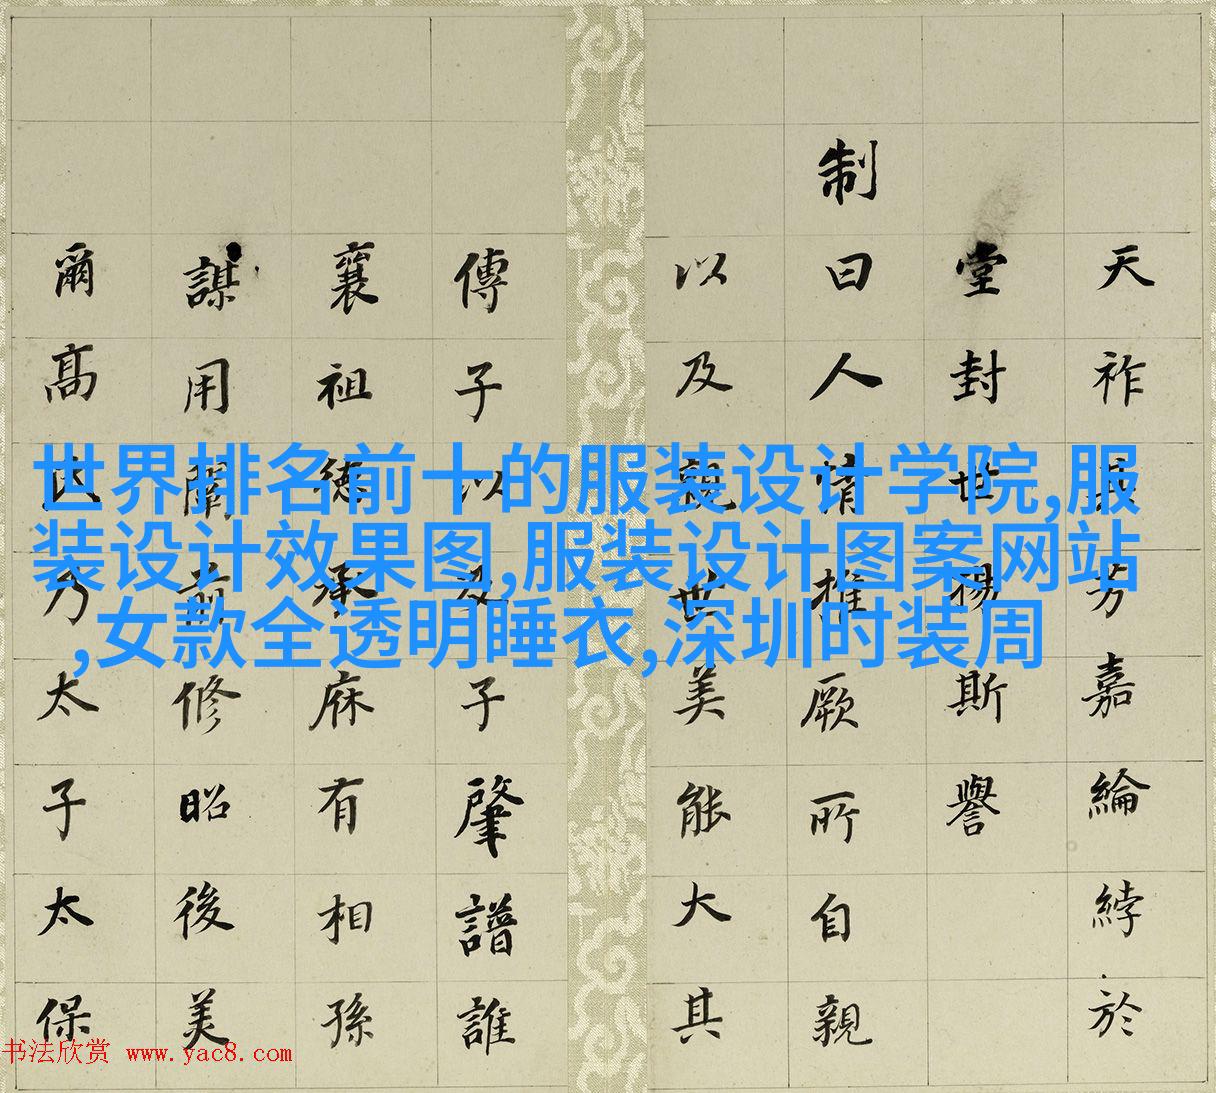 世界排名前十的服装设计学院,服
装设计效果图,服装设计图案网站
,女款全透明睡衣,深圳时装周
天祚芳嘉綸綍於
堂封世揚斯譽
制曰人情推厥所自親
以及親世美能大其
傳子以及子肇譜誰
襄祖德承庥有相孫
謀用闡前修昭後美
爾高氏乃太子太保
书法欣赏 www.yac8.com